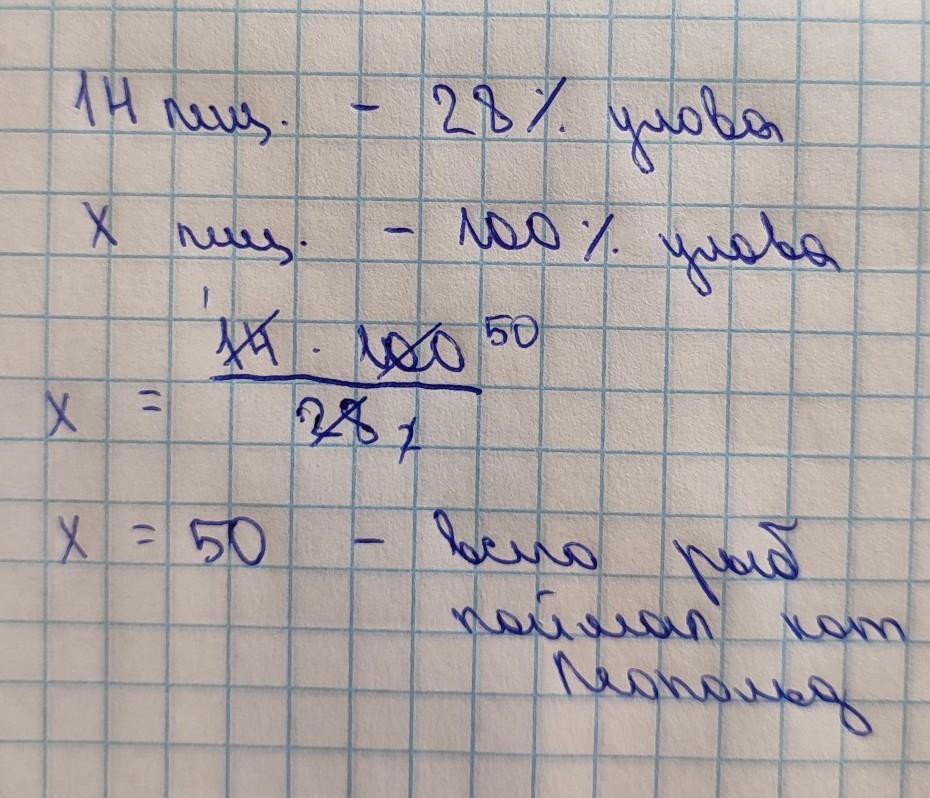 14 пищ. - 28% улова
x пищ. - 100% улова
1
14 · 100 50
x =
28 2
x = 50 - всего рыб
поймал кот
Леопольд